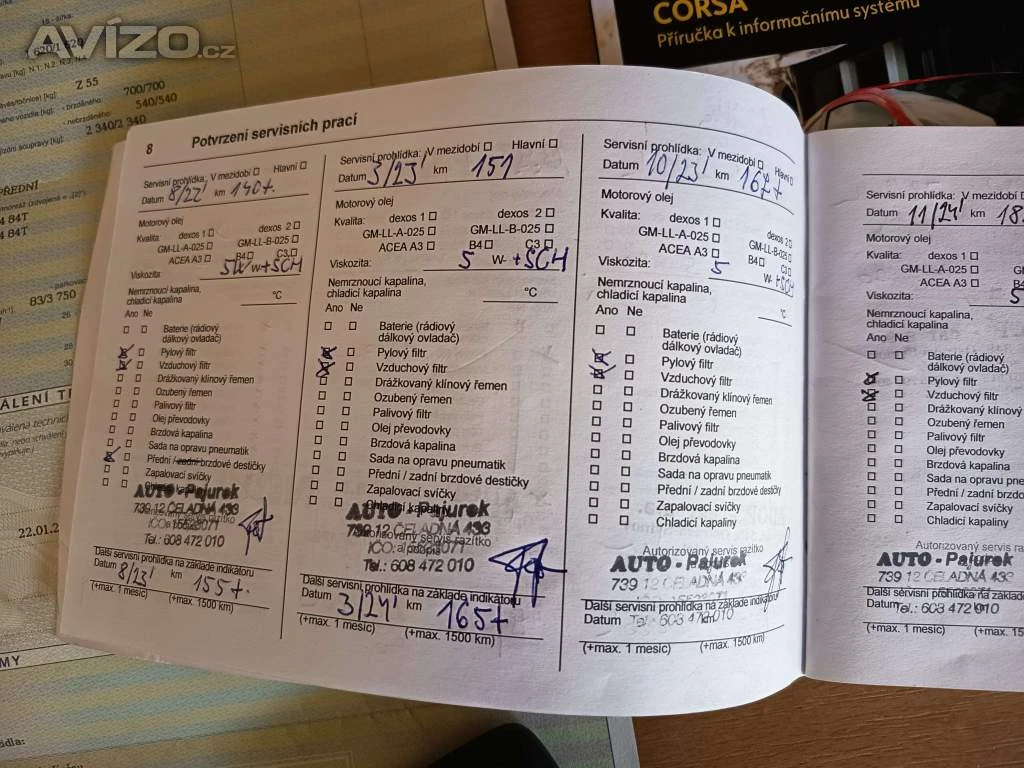 AVÍZO.cz
CORSA
Příručka k informačnímu systému
Z 55
700/700
540/540
2 340/2 340
83/3 750
22.01.2
8 Potvrzení servisních prací
Servisní prohlídka: V mezidobí Hlavní
Datum 8/22' km 140+
Motorový olej
Kvalita: dexos 1 dexos 2
GM-LL-A-025 GM-LL-B-025
ACEA A3 B4 C3
Viskozita: W +SCH
Nemrznoucí kapalina,
chladicí kapalina °C
Ano Ne
Baterie (rádiový
dálkový ovladač)
Pylový filtr
Vzduchový filtr
Drážkovaný klínový řemen
Ozubený řemen
Palivový filtr
Olej převodovky
Brzdová kapalina
Sada na opravu pneumatik
Přední / zadní brzdové destičky
Zapalovací svíčky
AUTO - Pajurek
739 12 ČELADNÁ 433
Tel.: 608 472 010
Další servisní prohlídka na základě indikátoru
Datum 8/23' km 155+
(+max. 1 měsíc) (+max. 1500 km)
Servisní prohlídka: V mezidobí Hlavní
Datum 3/23' km 151
Motorový olej
Kvalita: dexos 1 dexos 2
GM-LL-A-025 GM-LL-B-025
ACEA A3 B4 C3
Viskozita: 5 W- +SCH
Nemrznoucí kapalina,
chladicí kapalina °C
Ano Ne
Baterie (rádiový
dálkový ovladač)
Pylový filtr
Vzduchový filtr
Drážkovaný klínový řemen
Ozubený řemen
Palivový filtr
Olej převodovky
Brzdová kapalina
Sada na opravu pneumatik
Přední / zadní brzdové destičky
Zapalovací svíčky
Chladicí kapaliny
AUTO - Pajurek
739 12 ČELADNÁ 433
Tel.: 608 472 010
Další servisní prohlídka na základě indikátoru
Datum 3/24' km 165+
(+max. 1 měsíc) (+max. 1500 km)
Servisní prohlídka: V mezidobí Hlavní
Datum 10/23' km 167+
Motorový olej
Kvalita: dexos 1 dexos 2
GM-LL-A-025 GM-LL-B-025
ACEA A3 B4 C3
Viskozita: 5 W- +SCH
Nemrznoucí kapalina,
chladicí kapalina °C
Ano Ne
Baterie (rádiový
dálkový ovladač)
Pylový filtr
Vzduchový filtr
Drážkovaný klínový řemen
Ozubený řemen
Palivový filtr
Olej převodovky
Brzdová kapalina
Sada na opravu pneumatik
Přední / zadní brzdové destičky
Zapalovací svíčky
Chladicí kapaliny
Autorizovaný servis razítko
AUTO - Pajurek
739 12 ČELADNÁ 433
Další servisní prohlídka na základě indikátoru
Datum km
Tel.: 608 472 010
(+max. 1 měsíc) (+max. 1500 km)
Servisní prohlídka: V mezidobí
Datum 11/24' km 18
Motorový olej
Kvalita: dexos 1
GM-LL-A-025
ACEA A3
Viskozita: 5
Nemrznoucí kapalina,
chladicí kapalina
Ano Ne
Baterie (rádiový
dálkový ovladač)
Pylový filtr
Vzduchový filtr
Drážkovaný klínový
Ozubený řemen
Palivový filtr
Olej převodovky
Brzdová kapalina
Sada na opravu pneum
Přední / zadní brzdov
Zapalovací svíčky
Chladicí kapaliny
Autorizovaný servis razít
AUTO - Pajurek
739 12 ČELADNÁ 433
Další servisní prohlídka na základě
Datum
Tel.: 608 472 010
(+max. 1 měsíc) (+max. 15